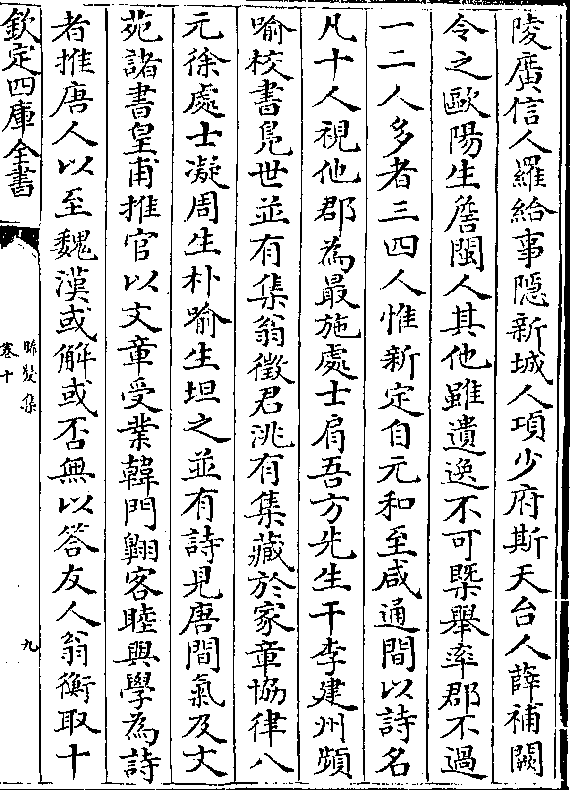 陵廣信人羅給事隠新城人項少府斯天台人薛補闕
令之歐陽生詹閩人其他雖遺逸不可槩舉率郡不過
一二人多者三四人惟新定自元和至咸通間以詩名
凡十人視他郡為最施處士肩吾方先生干李建州頻
喻校書鳧世並有集翁徵君洮有集藏於家章協律八
元徐處士凝周生朴喻生坦之並有詩見唐間氣及文
苑諸書皇甫推官以文章受業韓門翺客睦興學為詩
者推唐人以至魏漢或解或否無以答友人翁衡取十
欽定四庫全書
晞髮集
卷十
九